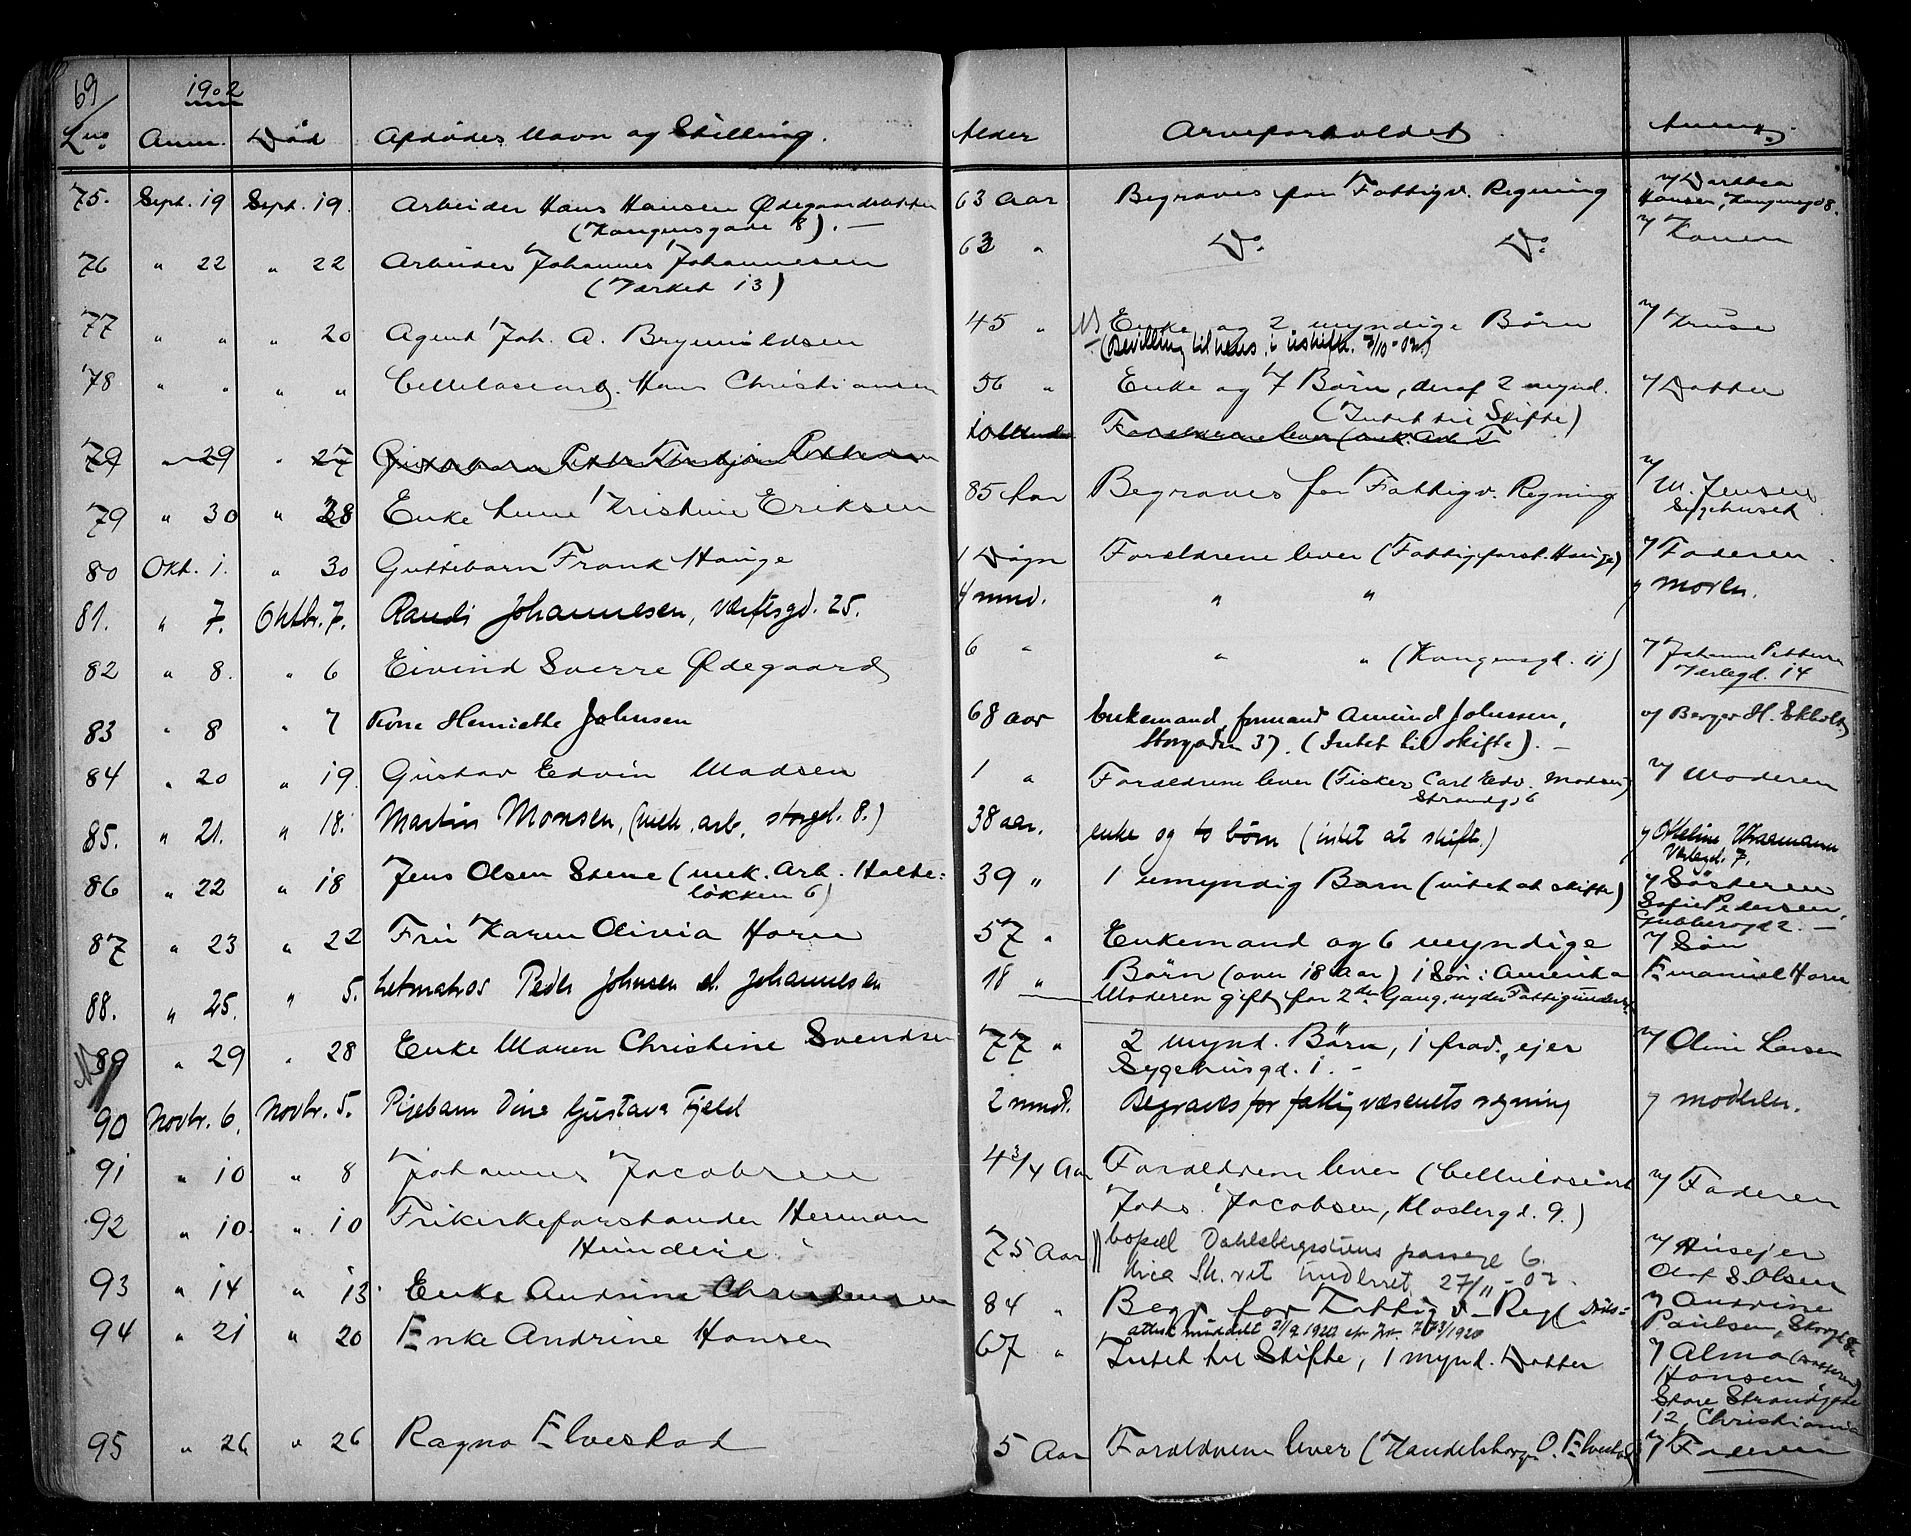 69
1902
Lno. Anm. Død Afdødes Navn og Stilling. Alder Arveforholdet Anmeldt
75. Sept. 19 Sept. 19. Arbeider Hans Hansen Ødegaardsløkken 63 Aar Begraves for Fattigv. Regning v/ Dorthea
(Kongensgade 8). — Hansen, Kongensgd 8.
76 " 22 " 22 Arbeider Johannes Johannesen 63 " Do. Do. v/ Konen
(Værket 13)
77 " " " 20 Agent Joh. A. Brynildsen 45 " Enke og 2 myndige Børn v/ Kruse
(Bevilling til hens. i uskifte. 3/10-02.)
78 " " " " Cellulosearb. Hans Christiansen 56 " Enke og 7 Børn, deraf 2 mynd. v/ Datter
(Intet til Skifte)
79 " 29 " 27 10 Maaneder Forældrene lever
79 " 30 " 28 Enke Anne Kristine Eriksen 85 Aar Begraves for Fattigv. Regning v/ M. Jensen
Sygehuset
80 Okt. 1. " 30 Guttebarn Frank Hauge 1 Døgn Forældrene lever (Fattigforst. Hauge) v/ Faderen
81. " 7. Oktbr. 7. Randi Johannesen, Værftsgd. 25. 4 mnd. " " v/ moren.
82 " 8. " 6 Eivind Sverre Ødegaard 6 " " " (Kongensgd. 11) v/ Johanne Pettersen
Verlegd. 14
83 " 8 " 7 Kone Henriette Johnsen 68 aar Enkemand, formand Amund Johnsen, v/ Berger H. Ekholt
Storgaden 37. (Intet til skifte). —
84 " 20 " 19 Gustav Edvin Madsen 1 " Forældrene lever (Fisker Carl Edv. Madsen) v/ Moderen
Strandgd 6
85. " 21. " 18. Martin Monsen, (mek. arb. storgd. 8.) 38 aar. enke og to børn (intet at skifte.) v/
Verlegd. 7.
86 " 22 " 18 Jens Olsen Stene (mek. Arb. Holte= 39 " 1 umyndig Barn (intet at skifte) v/ Søsteren
løkken 6) Sofie Pedersen,
Gubberogd 2. —
87 " 23 " 22 Fru Karen Olivia Horn 57 " Enkemand og 6 myndige v/ Søn
Børn (over 18 Aar) 1 Søn i Amerika Emanuel Horn
88. " 25. " 5. Letmatros Peder Johnsen el. Johannesen 18 " Moderen gift for 2den Gang, nyder Fattigunderst.
89 " 29 " 28 Enke Maren Christine Svendsen 77 " 2 mynd. Børn, 1 frad., ejer v/ Oline Larsen
Sygehusgd. 1. -
90 Novbr. 6. Novbr. 5. Pigebarn Dine Gustava Fjeld 2 mnd. Begraves for fattigvæsenets regning v/ moderen.
91 " 10 " 8 Johannes Jacobsen 4 3/4 Aar Forældrene lever (Cellulosearb. v/ Faderen
Johs. Jacobsen, Klostergd. 9.)
92 " 10. " 10 Frikirkeforstander Herman 75 Aar bopæl Dahlsbergstiens passage 6. v/ Husejer
Hundere. Skr.ret underret 27/11-02. Olaf S. Olsen
93 " 14 " 13 Enke Andrine Christensen 84 " Begr. for Fattigv. Regl. v/ Andrine
Paulsen,
94 " 21 " 20 Enke Andrine Hansen attest meddelt 2/9 1920
67 " Intet til Skifte, 1 mynd. Datter v/ Alma (Datteren)
Hansen,
Store Strandgade
12, Christiania
95 " 26 " 26 Ragna Elvestad 5 Aar Forældrene lever (Handelsborg. O. Elvestad) v/ Faderen